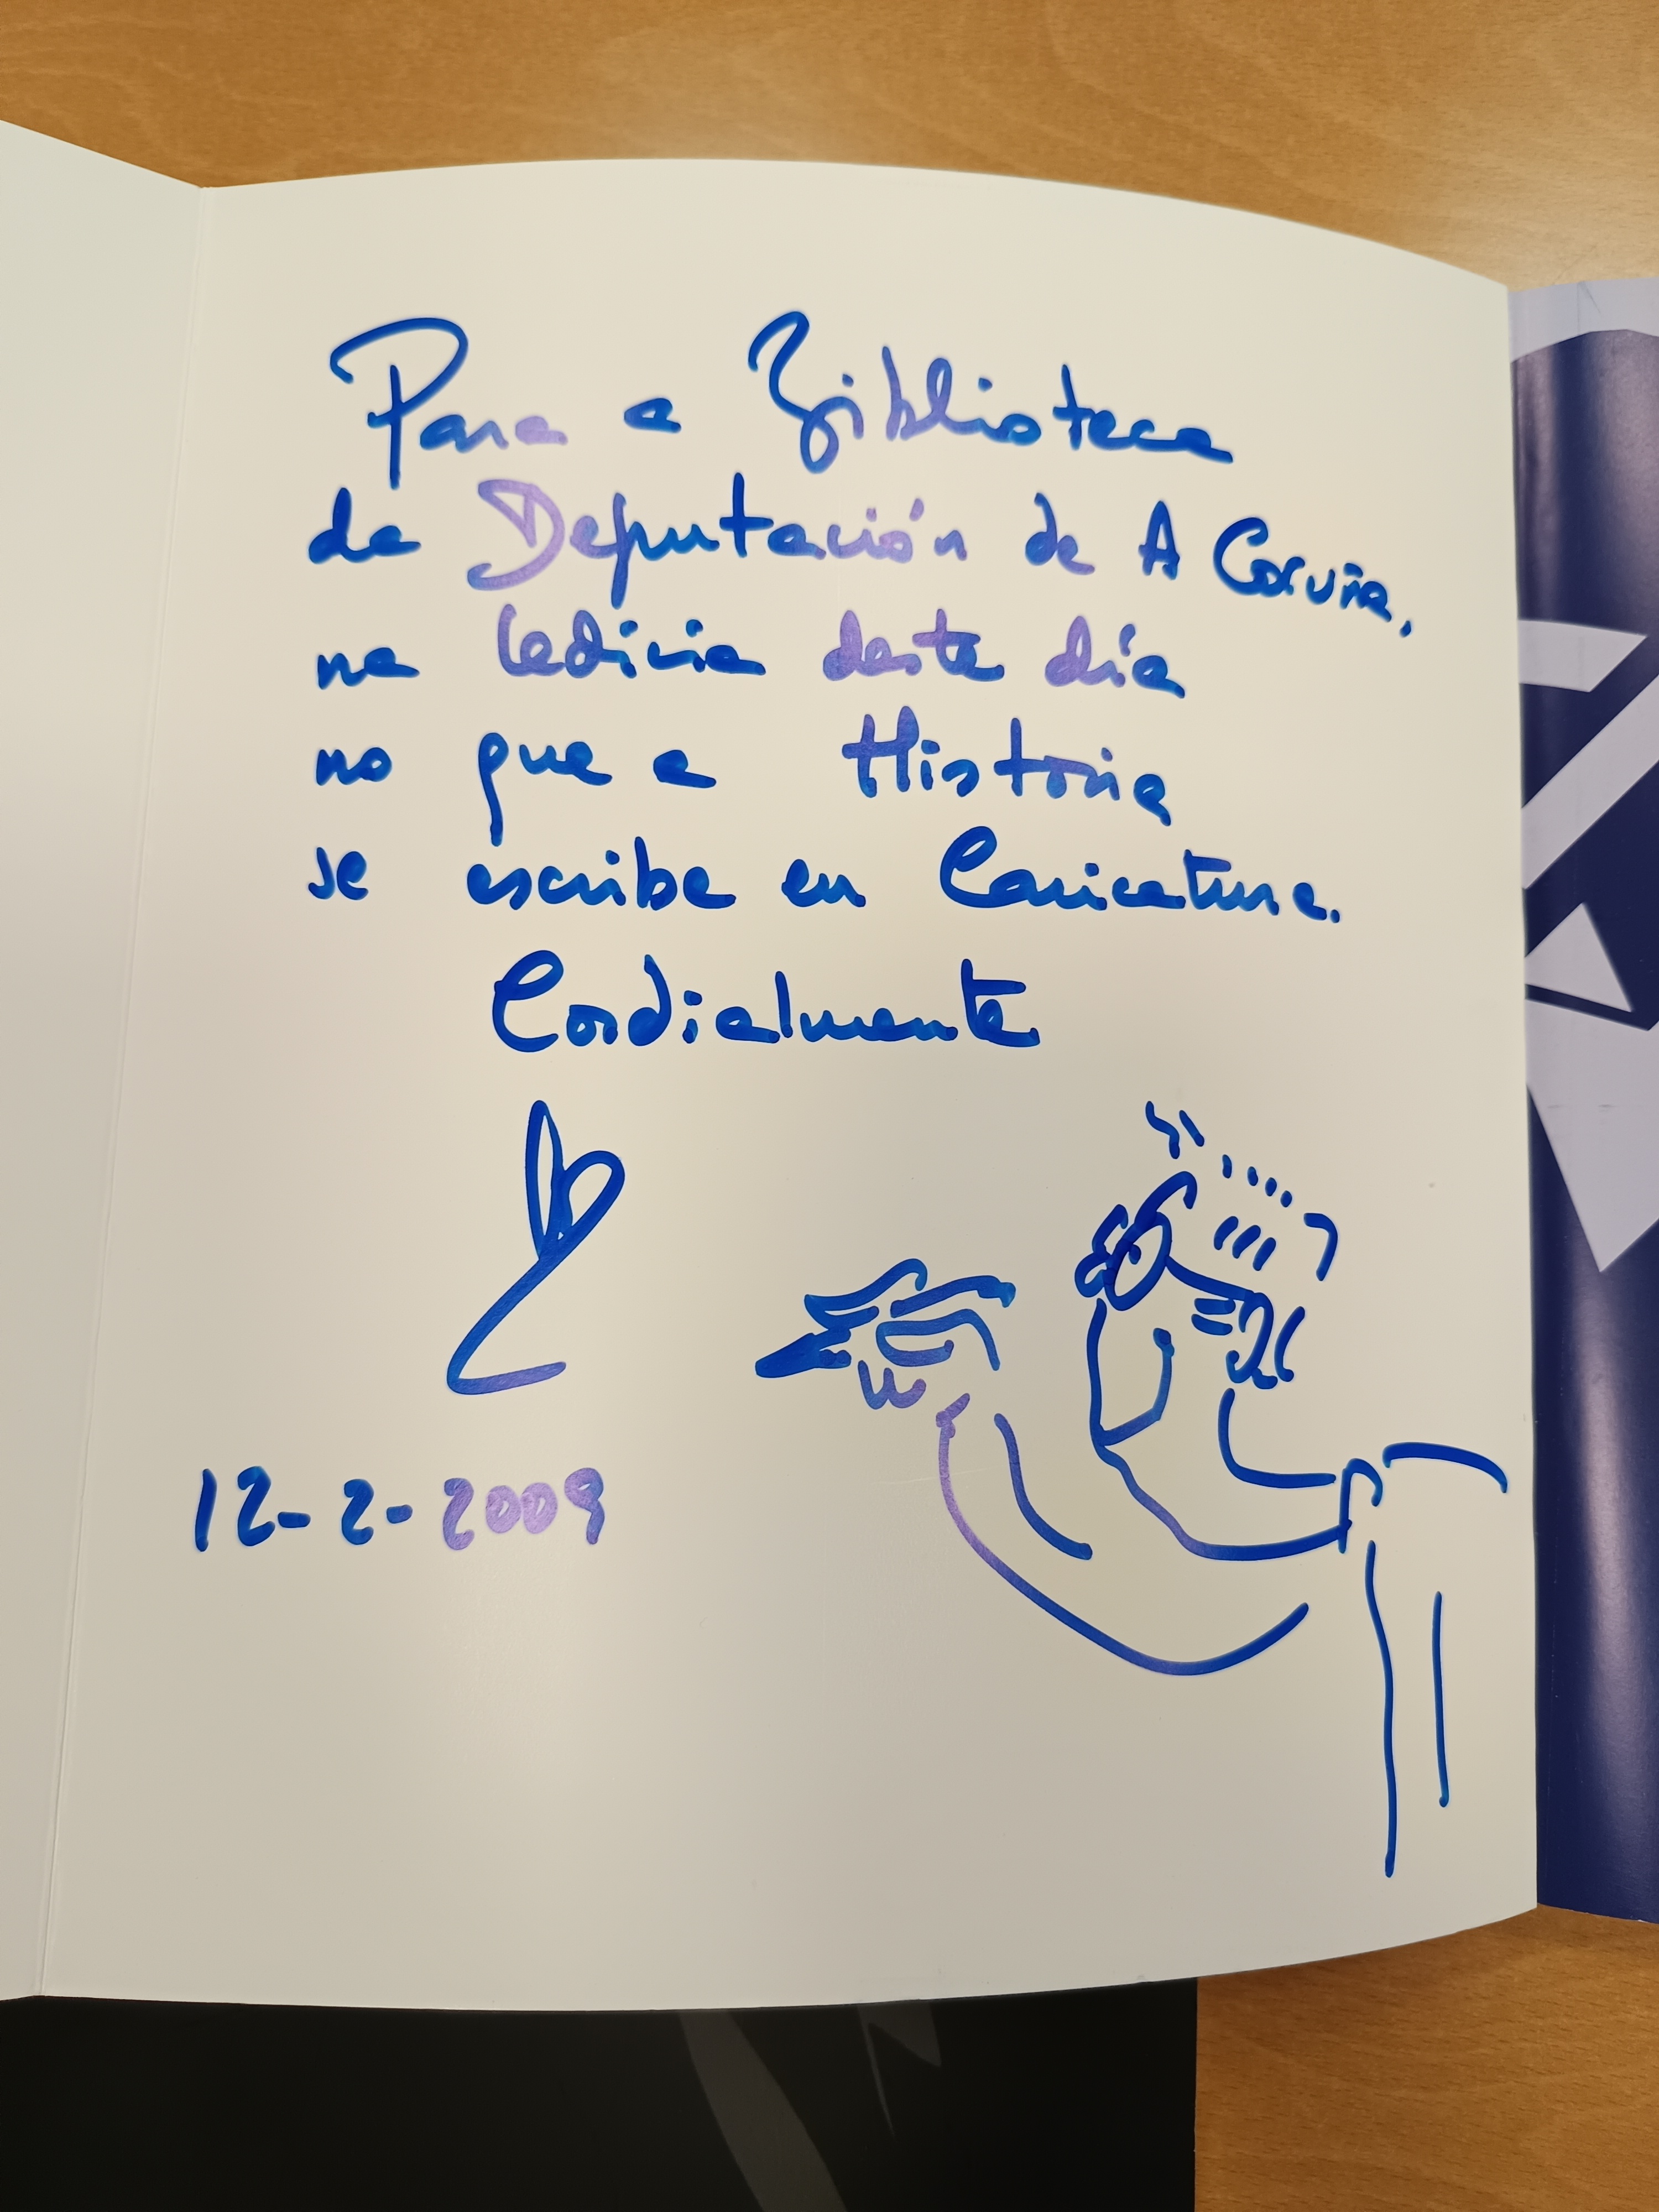 Para a Biblioteca
da Deputación de A Coruña,
na ledicia deste día
no que a Historia
se escribe en Caricatura.
Cordialmente
12-2-2009